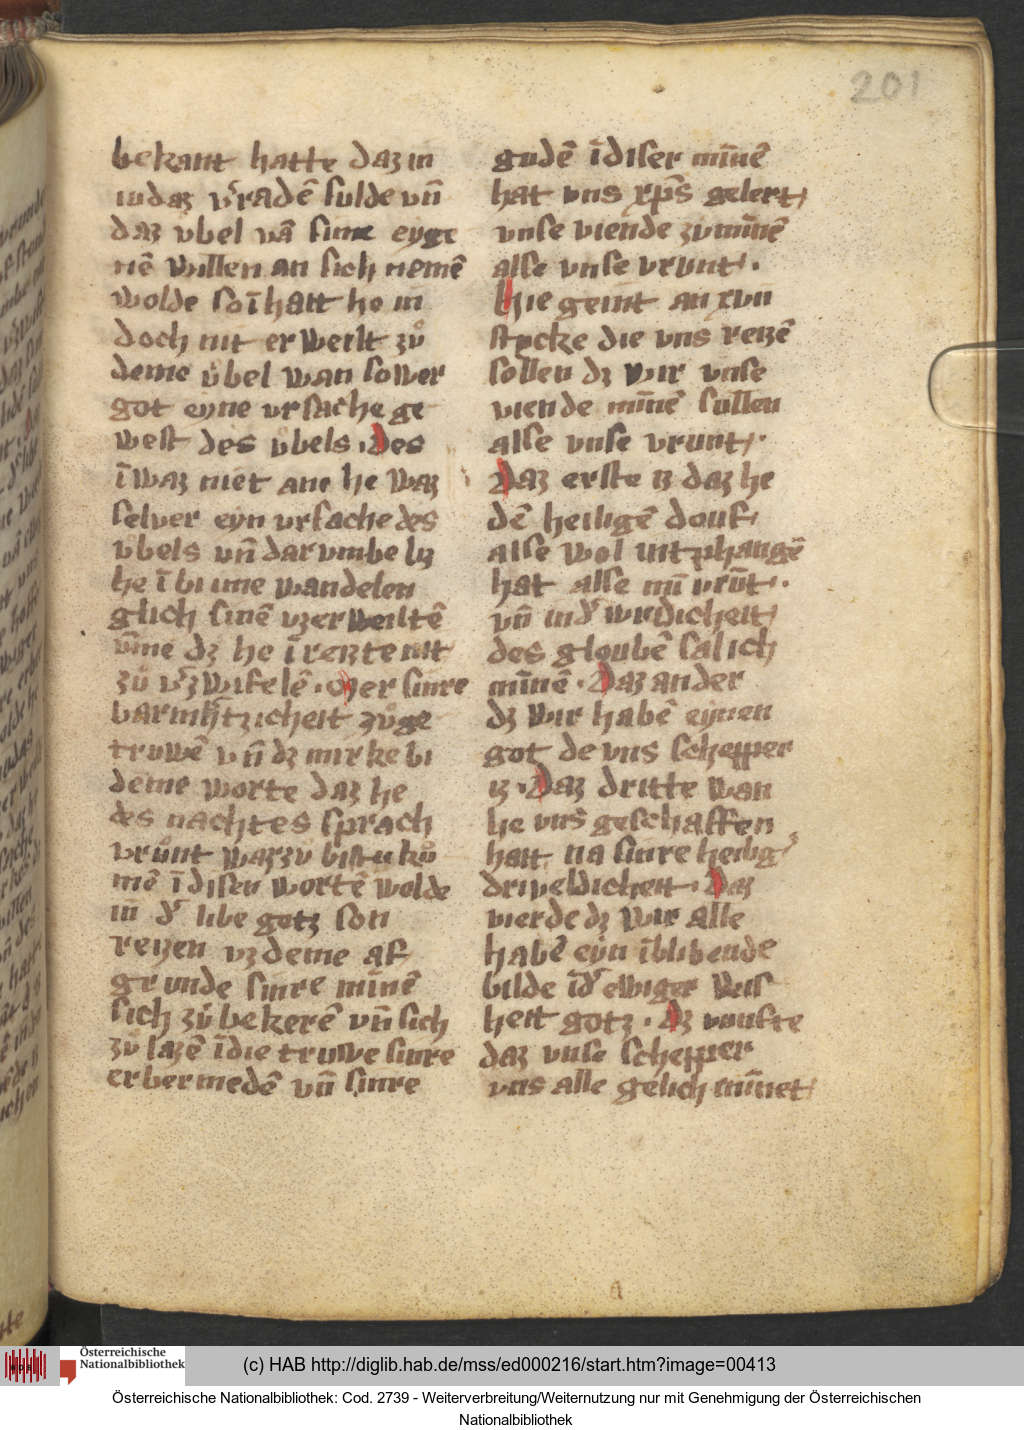 201
bekant hatte daz in
iudaz v͛radē sulde vn̄
daz vbel vā sime eyge
nē willen an sich nemē
wolde so ī hatt he in
doch nit erweilt zuͦ
deme uͦbel wan so wer
got eyne vrsache ge
west des uͦbels · Des
ī waz niet ane he waz
selver eyn vrsache des
vͦbels vn̄ dar vmbe liz
he ī bi ime wandelen
glich sinē vzerweiltē
vm̄e dz he ī reizte nit
zuͦ v͛zwifelē · Mer sinre
barmh̄tzicheit zuͦge
truwē vn̄ dz mirke bi
deme worte daz he
des nachtes sprach
vruͦnt warzuͦ bistu kuͦ
mē ī disen wortē wolde
in d͛ libe gotz son
reizen vz deme af
grunde sinre mīnē
sich zuͦ bekerē vn̄ sich
zuͦ lazē ī die truwe sinre
erbermedē vn̄ sinre
gudē ī diser mīnē
hat vns xp̄s gelert
vnse viende zu mīnē
alse vnse vrunt ·
Hie geint an xvn
stucke die vns reizē
sollen dz wir vnse
viende mīnē sullen
alse vnse vrunt ·
Daz erste iz daz he
dē heiligē douf
alse wol intphangē
hat alse mī vrūt ·
vn̄ in d͛ wirdicheit
des gloubē salich
mīnē · Daz ander
dz wir habē eynen
got de vns schepper
iz · Daz dritte wan
he vns geschaffen
hatt na sinre heilig͛
driveldicheit · Daz
vierde dz wir alle
habē eyn īblibende
bilde ī d͛ ewiger wis
heit gotz · Dz vonfte
daz vnse schepper
vns alle gelich mīnet
Österreichische
Nationalbibliothek
(c) HAB http://diglib.hab.de/mss/ed000216/start.htm?image=00413
Österreichische Nationalbibliothek: Cod. 2739 - Weiterverbreitung/Weiternutzung nur mit Genehmigung der Österreichischen
Nationalbibliothek